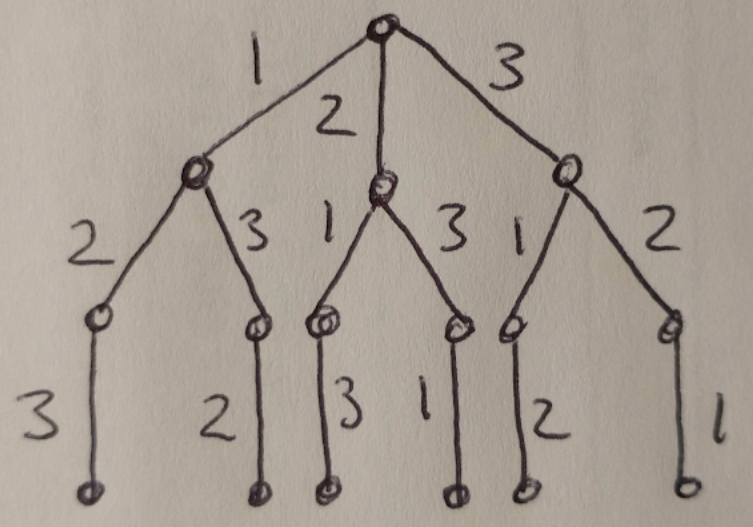 1 2 3
2 3 1 3 1 2
3 2 3 1 2 1